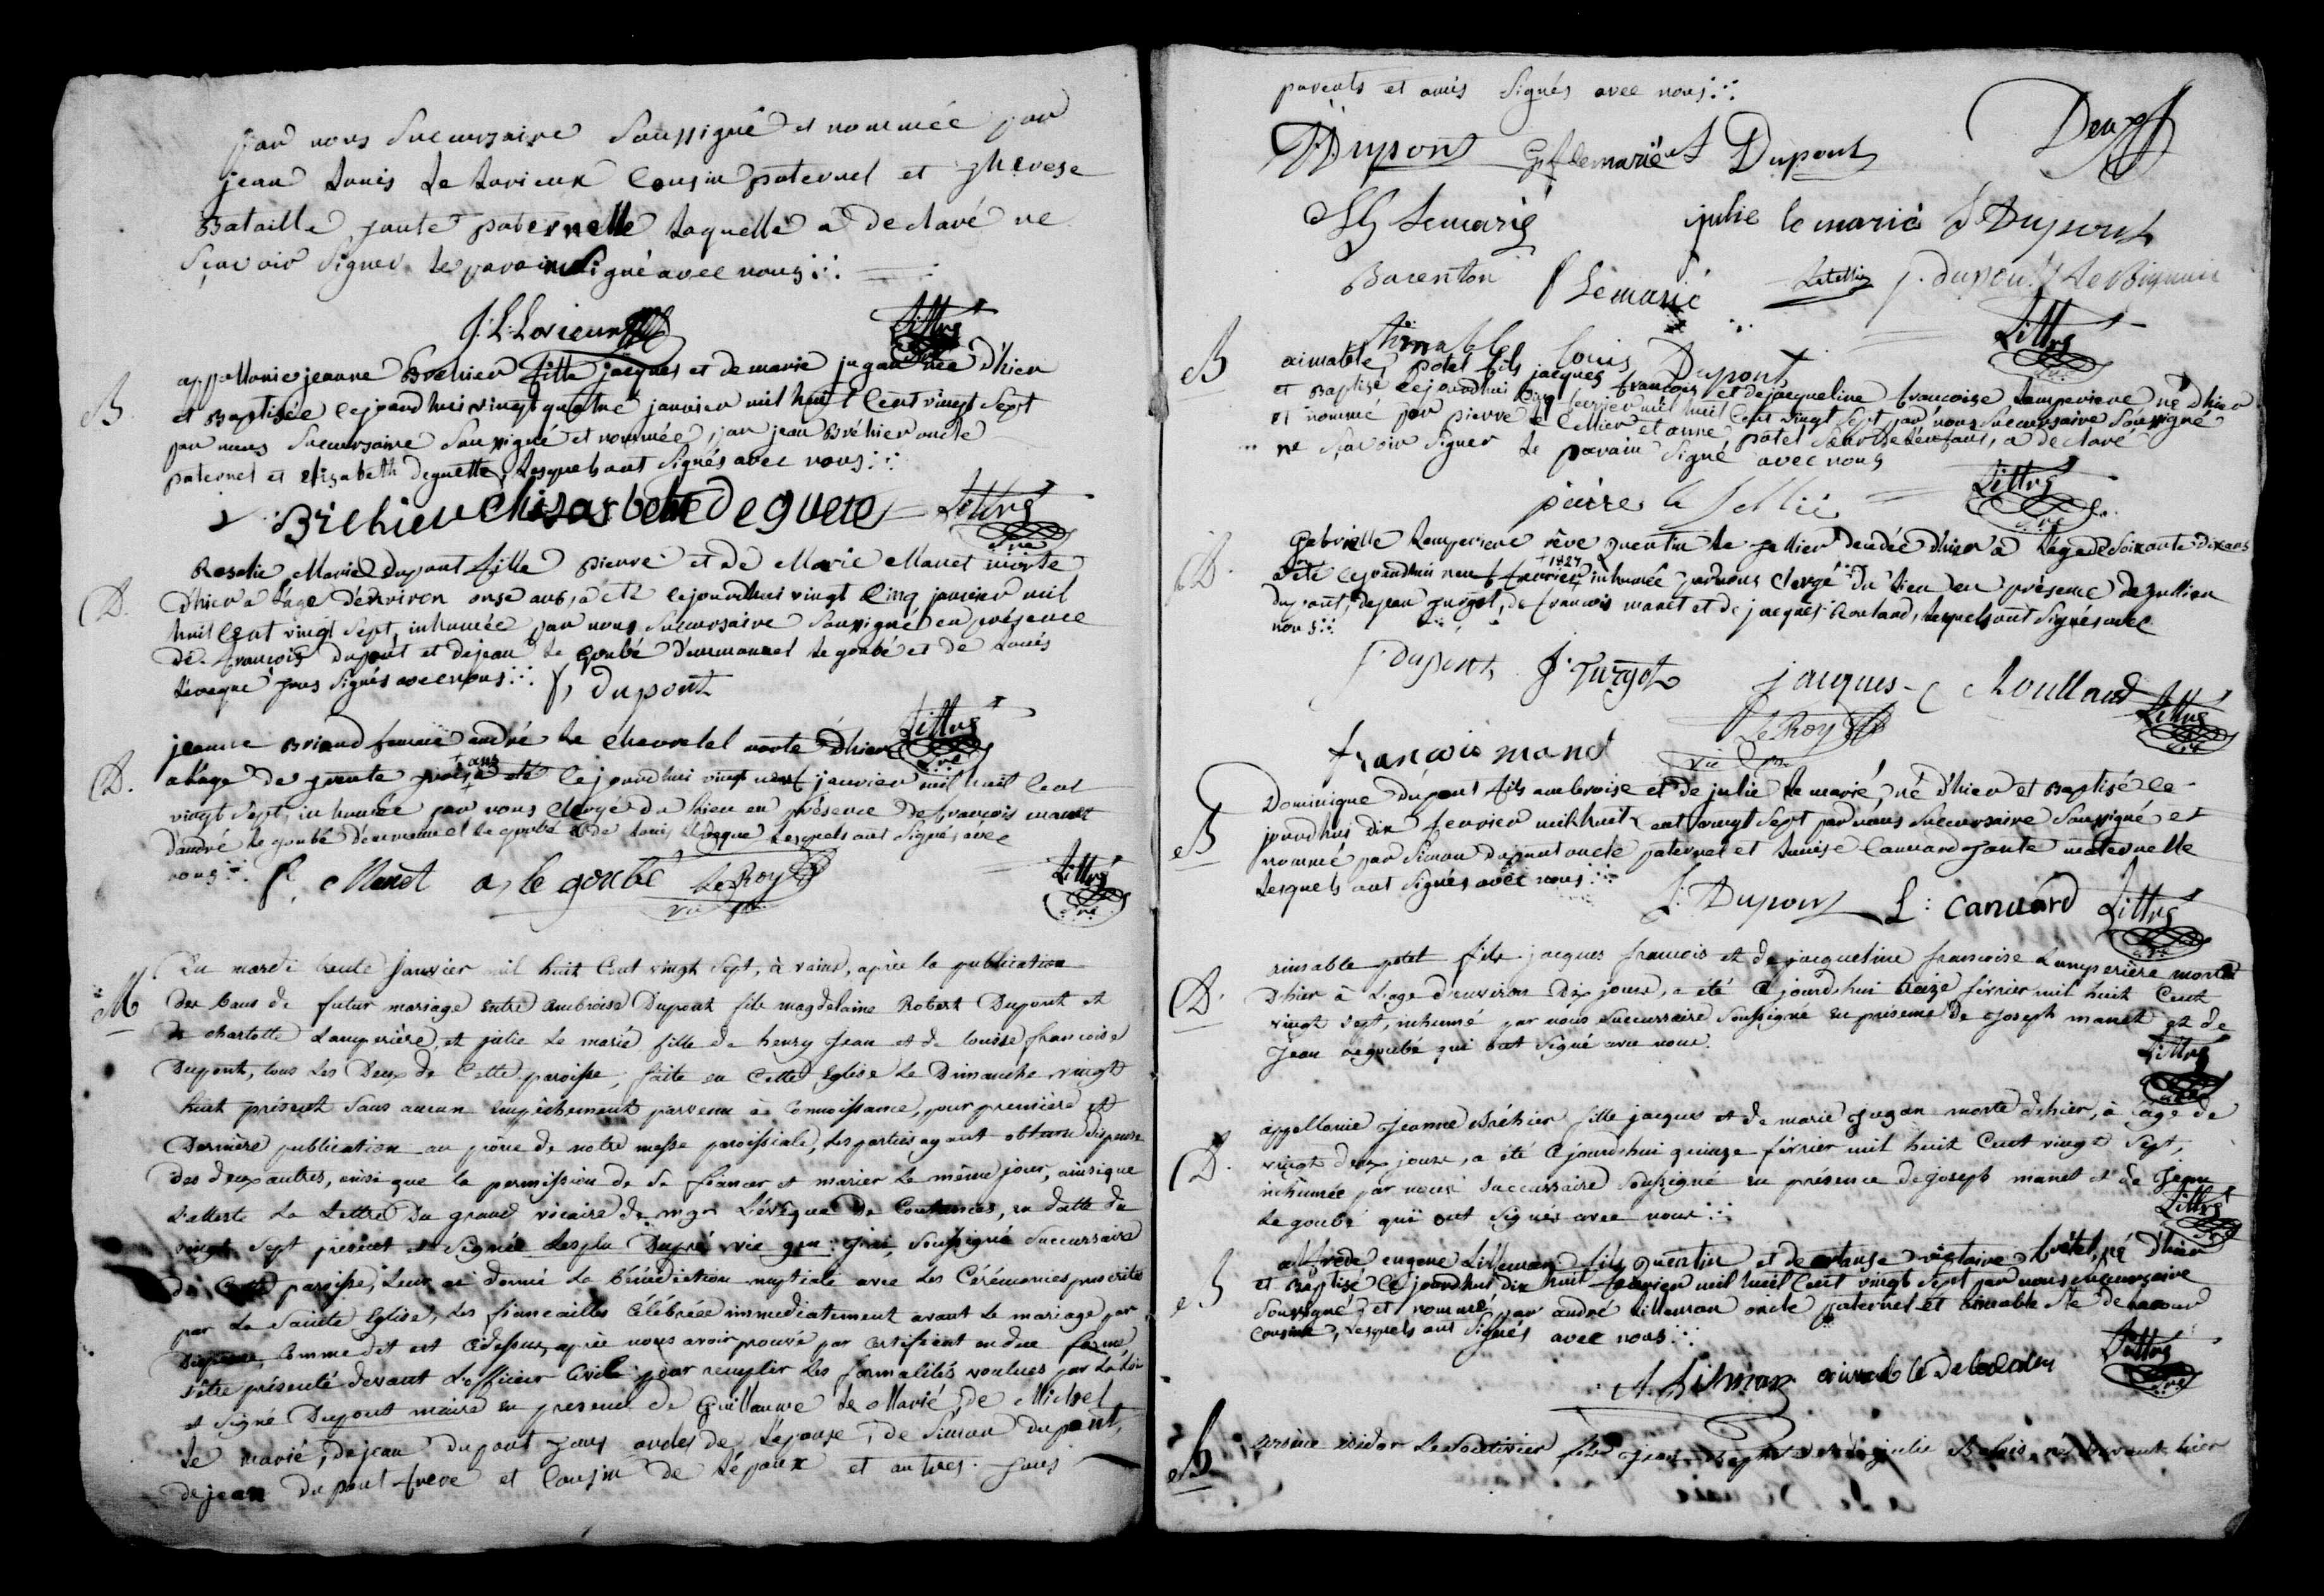 par nous Succursaire Soussigné et nommée par
jean Louis Le Lorieux Cousin paternel et Therese
Bataille tante paternelle laquelle a declaré ne
Sçavoir Signer le parain Signé avec nous
J: L: Lorieux Littré
B appollonie jeanne Brehier fille jacques et de marie jugan née d'hier
et Baptisée cejourdhui vingt quatre janvier mil huit Cent vingt Sept
par nous Succursaire Soussigné et nommée par jean Bréhier oncle
paternel et elisabeth deguette, lesquels ont Signés avec nous
Brehier Elisasbette deguete Littré
Rosalie Marie Dupont fille pierre et de Marie Manet morte
D. d'hier a l'âge d'environ onse ans, a été cejourdhui vingt Cinq janvier mil
huit Cent vingt Sept, inhumée par nous Succursaire Soussigné en présence
de françois dupont et dejean le goubé d'emmanuel le goubé et de Louis
Leveque tous Signés avec nous f, dupont
Littré
jeanne Briand femme andré le Chevretel morte d'hier
D. a l'age de trente trois ans a été cejourdhui vingt neuf janvier mil huit Cent
vingt Sept, inhumée par nous Clergé du lieu en présence de françois manet
d'andré le goubé d'emmanuel le goubé et de Louis Leveque lesquels ont Signés avec
nous f. Manet a, le goubé LeRoy Littré
M. Du mardi trente Janvier mil huit Cent vingt Sept, à vains, après la publication
des bans de futur mariage entre ambroise Dupont fils magdelaine Robert Dupont et
de charlotte Lamperière, et julie le marié fille de henry Jean et de Louise françoise
Dupont, tous les Deux de Cette paroisse, faite en Cette Eglise le Dimanche vingt
huit présent sans aucun empêchement parvenu à Connoissance, pour première et
Dernière publication au prône de notre messe paroissiale, les parties ayant obtenu dispense
des deux autres, ainsi que la permission de se fiancer et marier le même jour, ainsi que
l'atteste la Lettre Du grand vicaire de mgr L'évêque de Coutances, en datte du
vingt Sept présent et Signée Desplu Dupré vic gen: Je, Soussigné Succursaire
de Cette paroisse, leur ai donné la bénédiction nuptiale avec les Cérémonies prescrites
par la Sainte Eglise, les fiancailles Célébrées immediatement avant le mariage par
Dispense, Comme dit est cidessus, après nous avoir prouvé par certificat en due forme
s'être présenté devant l'officier Civile pour remplir les formalités voulues par la loi
et Signé Dupont maire en présence de Guillaume le Marié, de Michel
le marié, dejean dupont tous oncles de L'epouse, de Simon dupont,
dejean du pont frere et Cousin de L'époux et autres tous
parents et amis Signés avec nous
Dupont G f lemarié S Dupont
Lemarié julie le marié Dupont
Barenton f Lemarié Letellier j. dupont
Aimable Louis Dupont Littré
B aimable, potel fils jacques francois et dejacqueline francoise Lamperiere né d'hier
et Baptisé cejourdhui Cinq fevrier mil huit Cent vingt Sept par nous Succursaire Soussigné
et nommé par pierre le tellier et anne potel Soeur de L'enfant, a declaré
ne Scavoir Signer le parain Signé avec nous
piérre le Tellié Littré
D. Gabrielle Lamperiere vêve Quentin le Tellier decédée d'hier a l'age de Soixante Dix ans
a été cejourdhui neuf fevrier 1827 inhumée par nous Clergé du lieu en présence dejullien
dupont, dejean Turgot, de françois manet et de jacques Roulland, lesquels ont Signés avec
nous
j. dupont J. Turgot jacques Roulland Littré
françois manet LeRoy
B Dominique dupont fils ambroise et de julie le marié, né d'hier et Baptisé ce
jourdhui dix fevrier mil huit Cent vingt Sept par nous Succursaire Soussigné et
nommé par Simon dupont oncle paternel et Louise Canuard tante maternelle
lesquels ont Signés avec nous
S. Dupont L: canuard Littré
aimable potel fils jacques francois et de jacqueline francoise Lamperière mort
D. D'hier à L'age d'environ Dix jours, a été Cejourdhui treize février mil huit Cent
vingt Sept, inhumé par nous Succursaire Soussigné en présence De Joseph manet et de
Jean Legoubé qui ont Signé avec nous.
Littré
appollonie Jeanne Bréhier fille jacques et de marie Jugan morte d'hier, à l'age de
D. vingt deux jours, a été Cejourdhui quinze février mil huit Cent vingt Sept,
inhumée par nous Succursaire Soussigné en présence dejoseph manet et de Jean
Le goubé qui ont Signés avec nous
Littré
B alfrede, eugene Lilleman fils quentin et de victoire potel, né d'hier
et Baptisé Cejourdhui dix huit fevrier mil huit Cent vingt Sept par nous Succursaire
Soussigné et nommé par andré Lilleman oncle paternel et aimable
Cousine, lesquels ont Signés avec nous
A. Lilman Littré
B. arsène isidor fils Jean Baptiste et de julie né avant hier